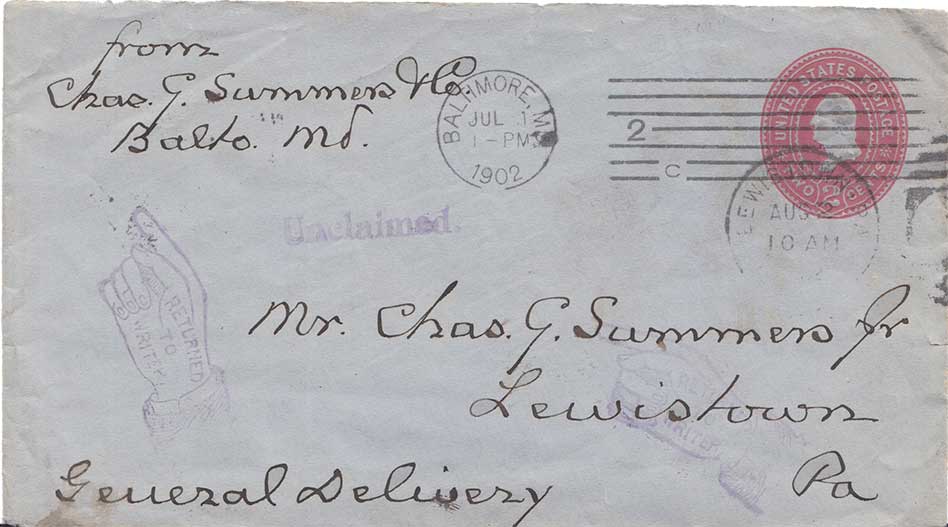 from
Chas. G. Summers & Co.
Balto. Md.
BALTIMORE, MD
JUL 1
1-PM
1902
2
C
UNITED STATES POSTAGE
TWO 2 CENTS
AUG 2
10 AM
Unclaimed.
RETURNED
TO
WRITER
Mr. Chas. G. Summers Jr
Lewistown
WRITER
General Delivery
Pa